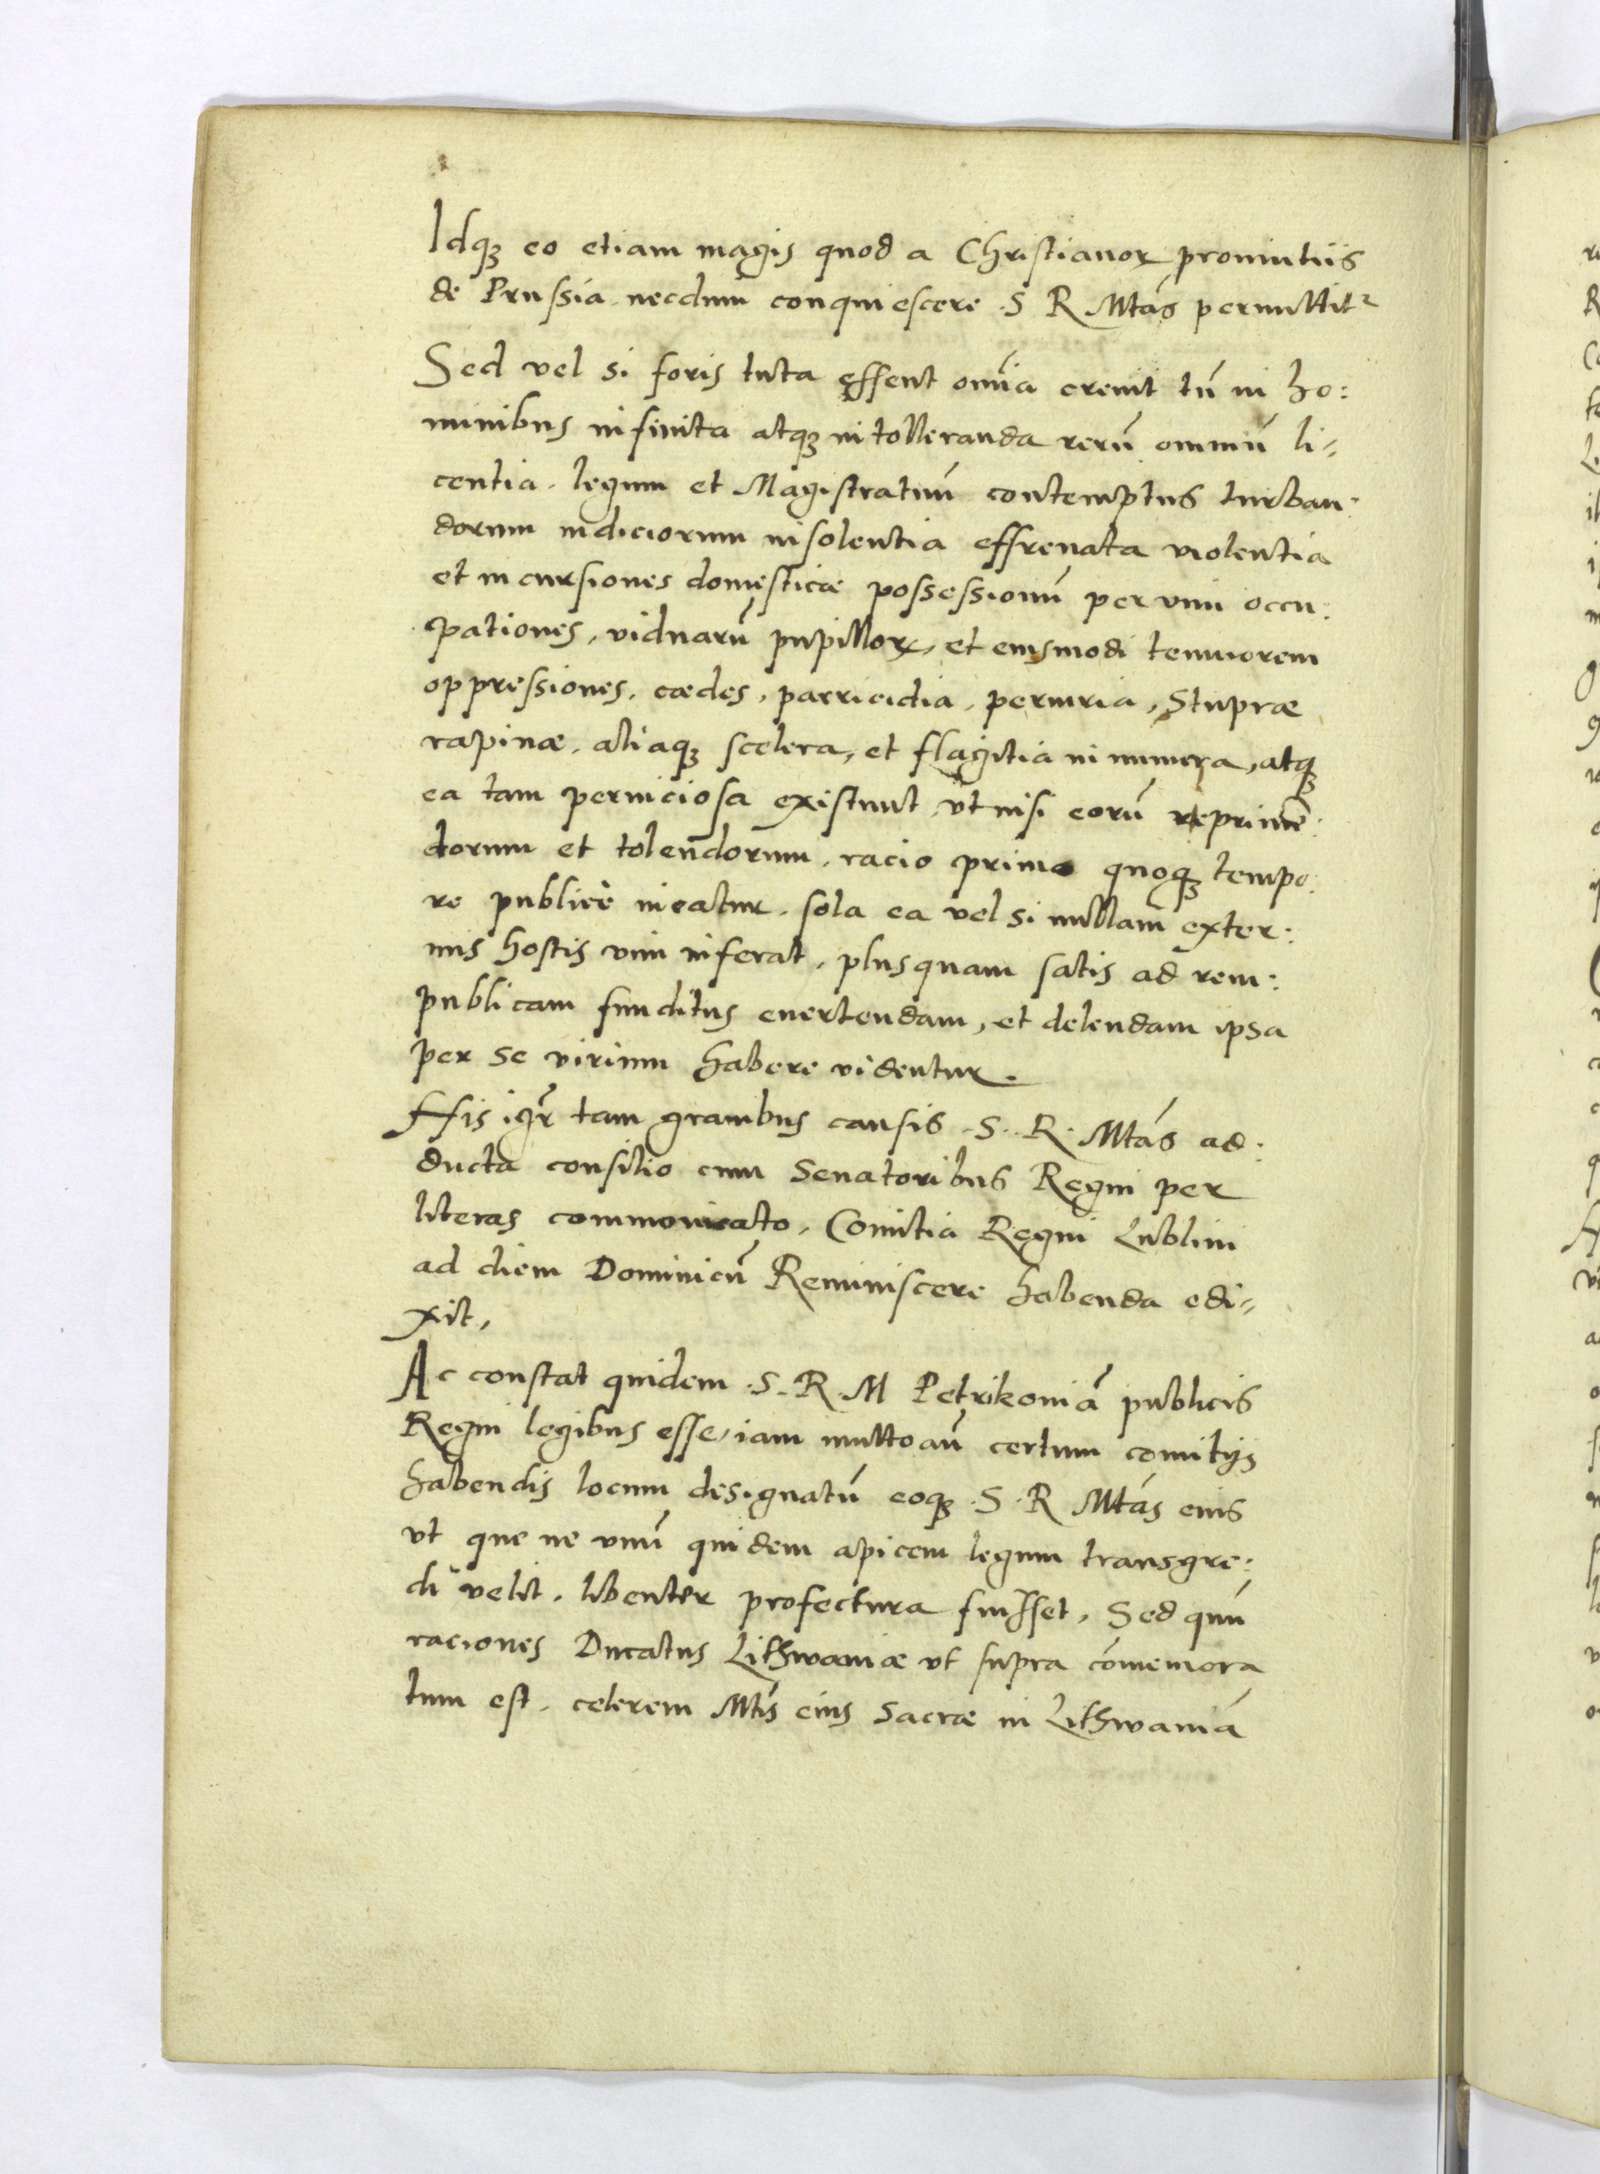 Idq₃ eo etiam magis quod a Christianoꝝ prouintiis
de Prussia necdum conquiescere S R Mtas permittitr
Sed vel si foris tuta essent omĩa creuit tñ in ho:
minibus infinita atq₃ intolleranda rerũ omniũ li=
centia. legum et Magistratuũ contemptus turban:
dorum iudiciorum insolentia effrenata violentia
et incursiones domesticæ possessionũ per vim occu:
pationes, viduarũ pupilloꝝ, et eiusmodi tenuiorem
oppressiones. cædes, parricidia, periuria, Stupræ
rapinæ. aliaq₃ scelera, et flagitia innumera, atq₃
ea tam perniciosa existunt, vt nisi eorũ reprimẽ:
dorum et tolendorum. racio primo quoq₃ tempo:
re publice ineatur. sola ea vel si nullam exter:
nus hostis vim inferat, plusquam satis ad rem:
publicam funditus euertendam, et delendam ipsa
per se virium habere videntur.
His igr̃ tam grauibus causis .S. R. Mtas ad:
ducta consilio cum Senatoribus Regni per
literas communicato, Comitia Regni Lublini
ad diem Dominicũ Reminiscere habenda edi=
xit,
Ac constat quidem .S. R. M Petrikoniã publicis
Regni legibus esse, iam multo añ certum comitijs
habendis locum designatũ eoq₃ .S. R Mtas eius
vt que ne vnũ quidem apicem legum transgre:
di velit. libenter profectura fuisset, Sed quũ
raciones Ducatus Lithwaniæ vt supra cõmemora
tum est. celerem Mtis eius Sacræ in Lithwaniã